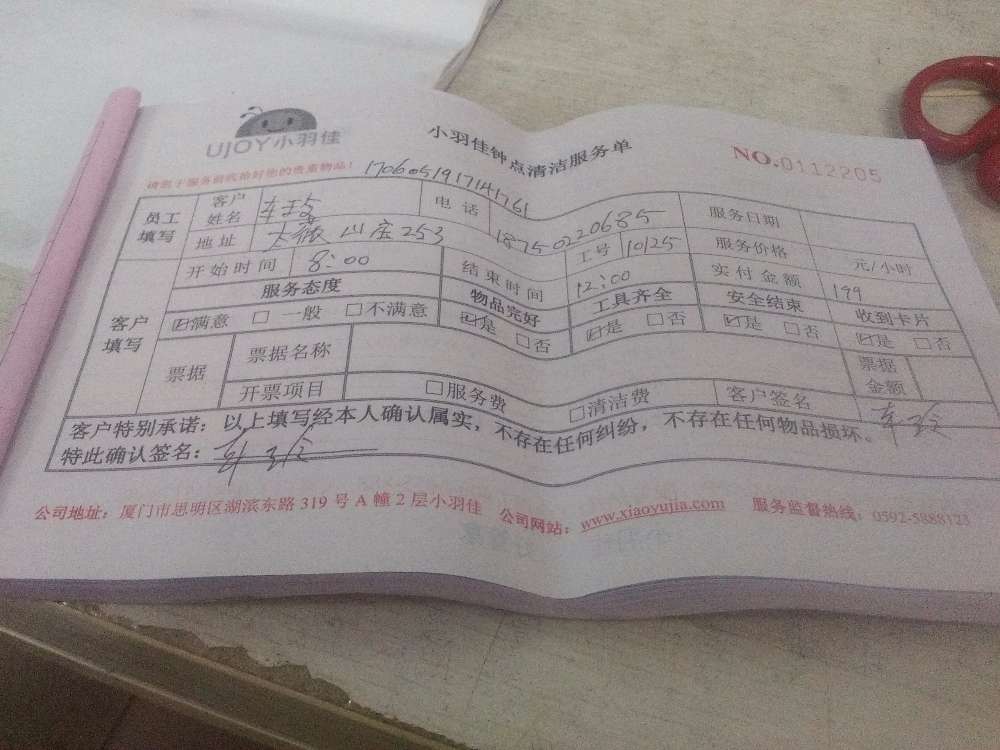 UJOY小羽佳
小羽佳钟点清洁服务单
NO.0112205
请您于服务前收拾好您的贵重物品！
1706051917141761
员工填写 客户姓名 电话 18750220685 服务日期
地址 太薇山庄253 工号 10125 服务价格 元/小时
客户填写 开始时间 8:00 结束时间 12:00 实付金额 199
服务态度 物品完好 工具齐全 安全结束 收到卡片
☑满意 □一般 □不满意 ☑是 □否 ☑是 □否 ☑是 □否 ☑是 □否
票据 票据名称 票据金额
开票项目 □服务费 □清洁费 客户签名
客户特别承诺：以上填写经本人确认属实，不存在任何纠纷，不存在任何物品损坏。
特此确认签名：
公司地址：厦门市思明区湖滨东路 319 号 A 幢 2 层小羽佳 公司网站：www.xiaoyujia.com 服务监督热线：0592-5888123